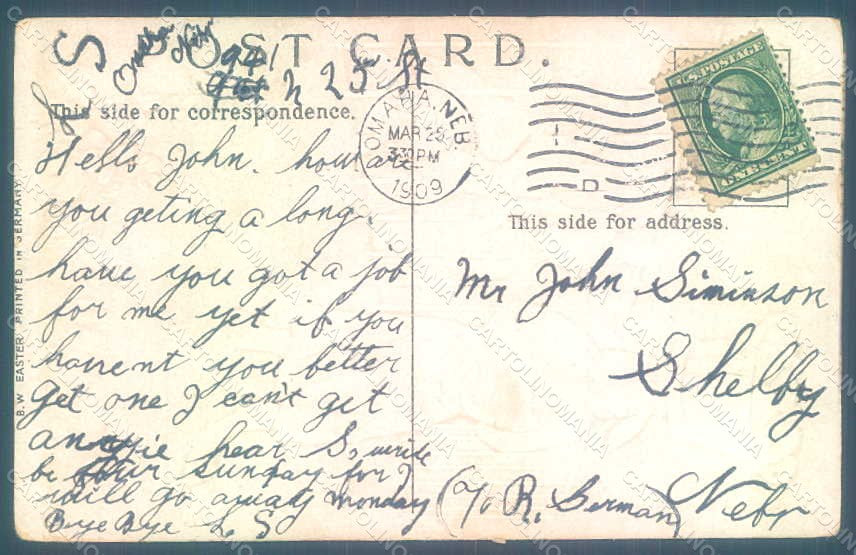 POST CARD.
Omaha Nebr
941 N 25 St
This side for correspondence.
OMAHA, NEB.
MAR 25
3 30 PM
1909
D
U.S. POSTAGE
ONE CENT
Hello John. how are
you geting a long.
have you got a job
for me yet if you
havent you better
get one I can't get
hear So write
be sunday for I
will go away monday
Bye Bye L S
This side for address.
Mr John Siminson
Shelby
Nebr
C/o R. German
B.W EASTER PRINTED IN GERMANY
CARTOLINOMANIA